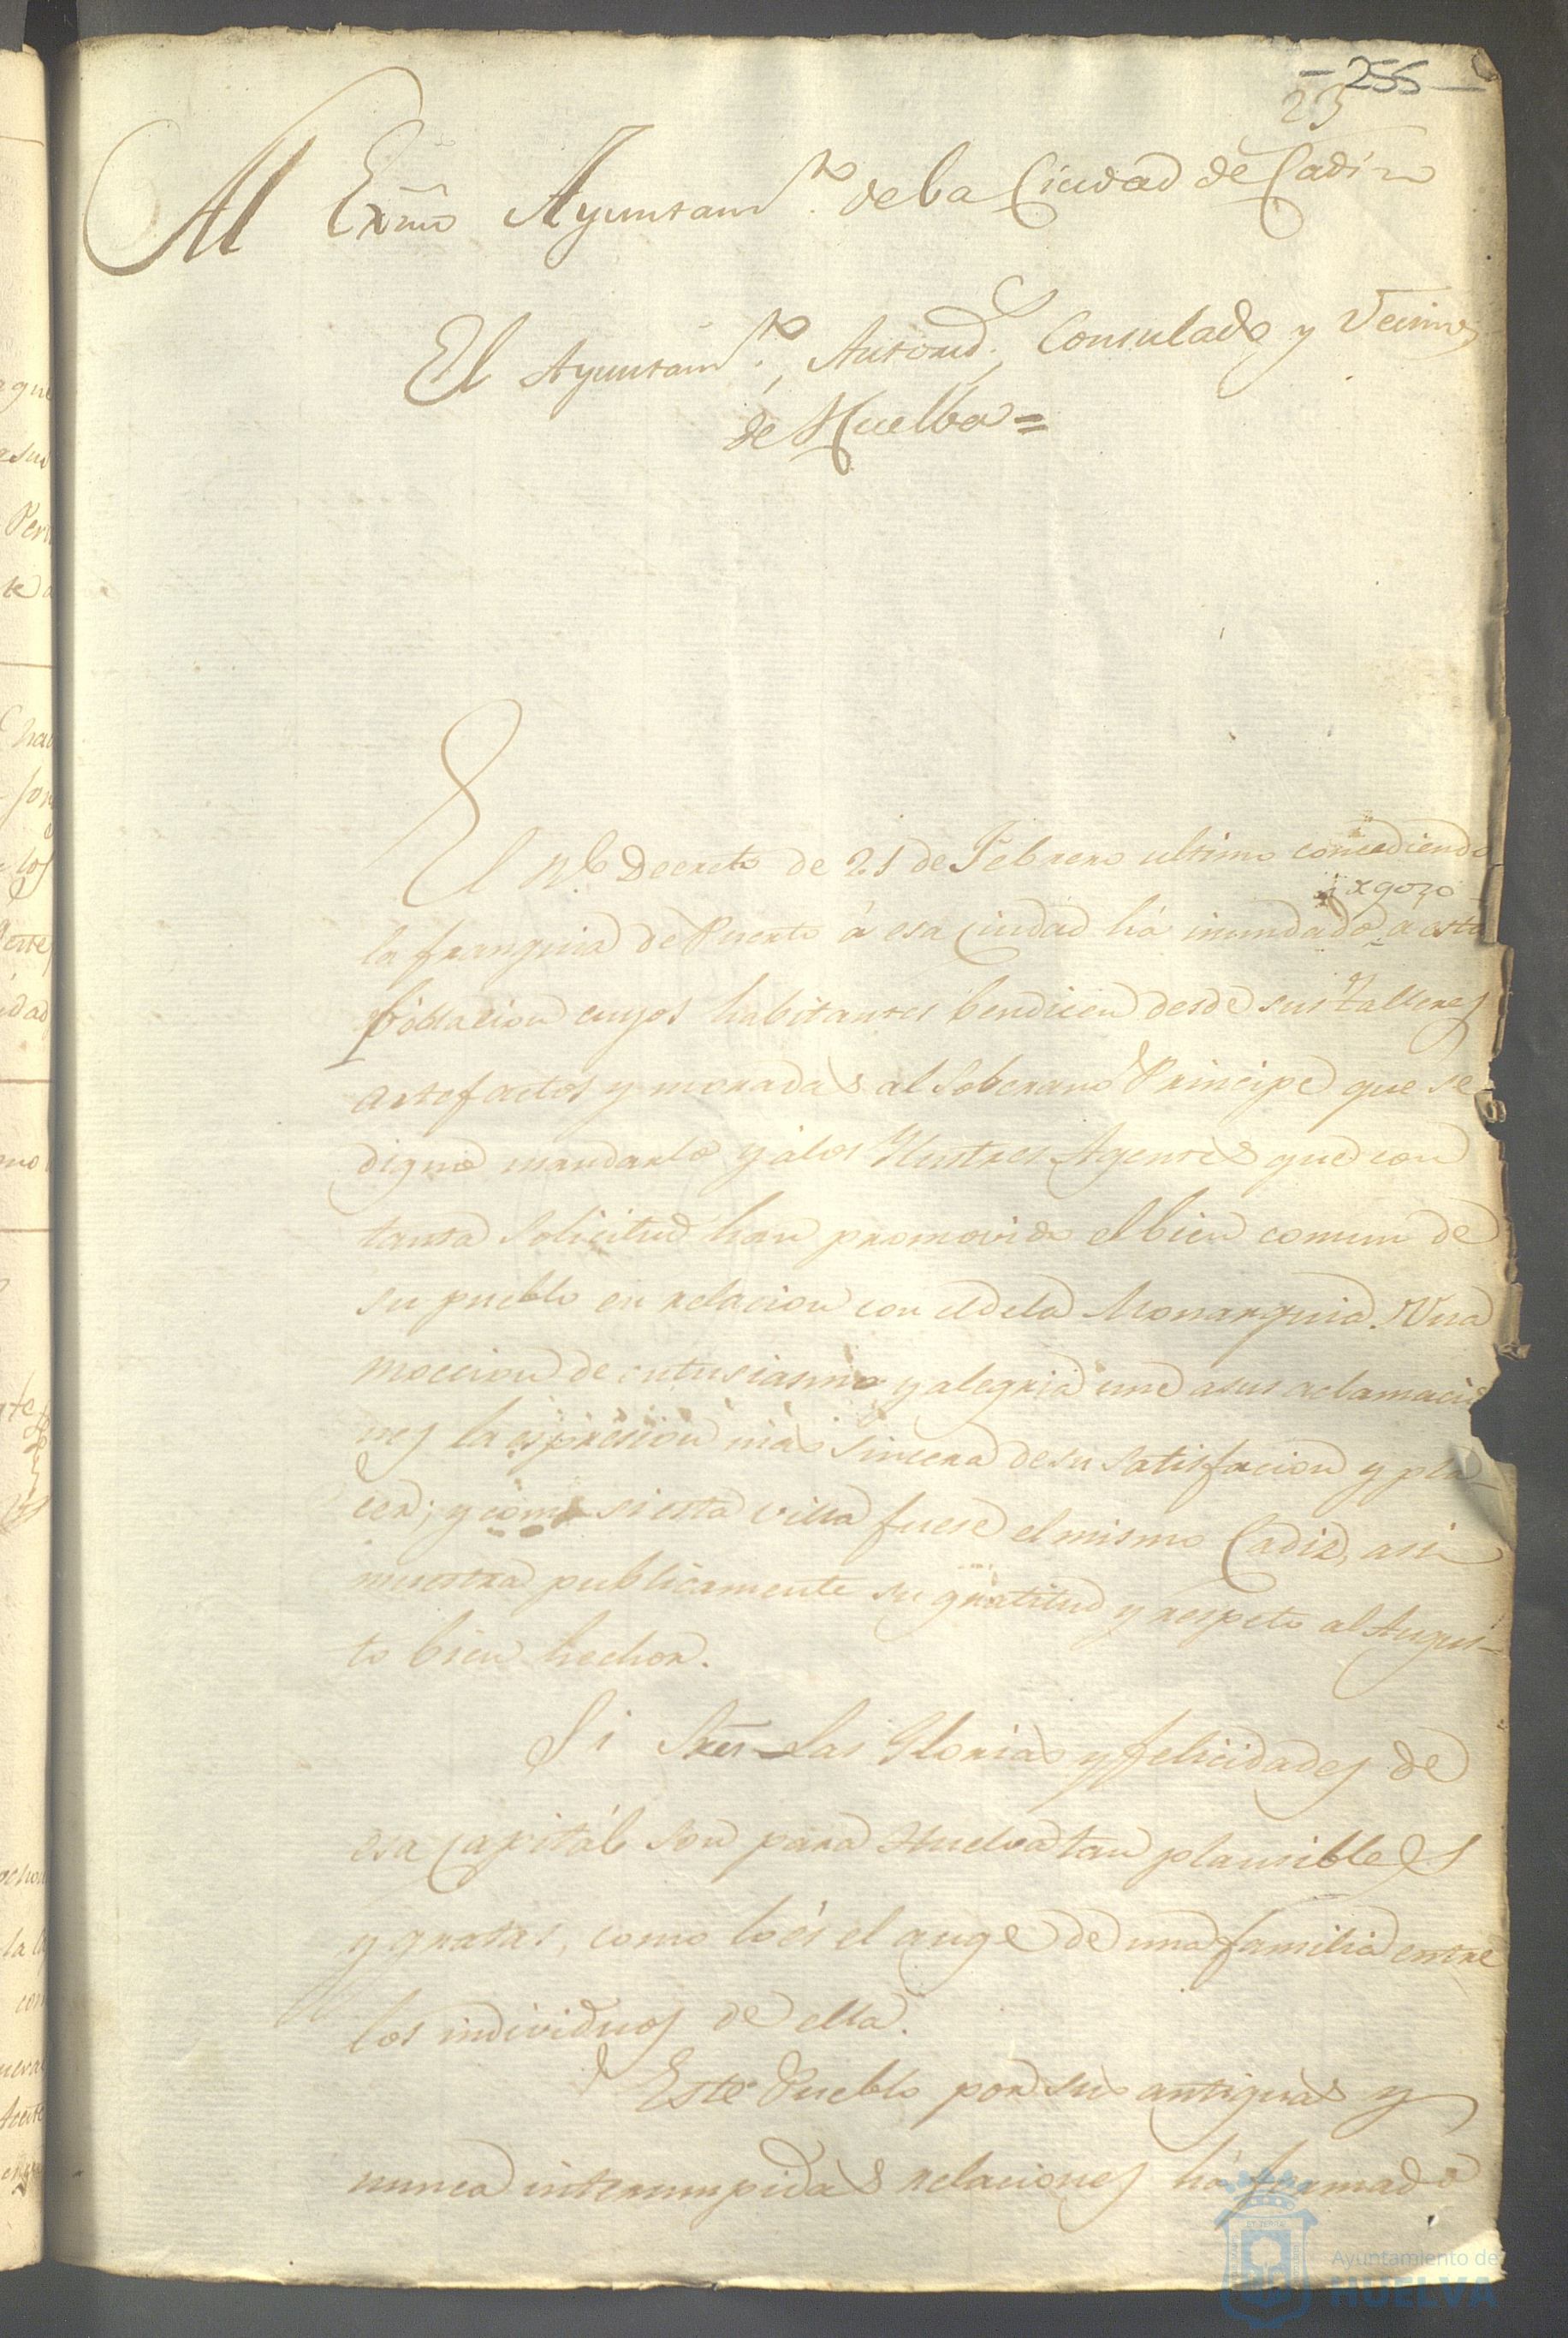 - 256 -
23
Al Exmo Ayuntam.to de la Ciudad de Cadiz
El Ayuntam.to, Autorid.s, Consulado y Vecinos
de Huelba =
El Rl. Decreto de 21 de Febrero ultimo concediendo
la franquicia de Puerto á esa Ciudad há inundado
a esta
poblacion cuyos habitantes bendicen desde sus talleres
artefactos y moradas al Soberano Principe que se
dignó mandarlo y álos Ilustres Agentes que con
tanta solicitud han promovido el bien comun de
su pueblo en relacion con el dela Monarquia. Una
moccion de entusiasmo y alegria une asus aclamacio
nes la espresion mas sincera desu satisfacion y pla-
cer; y como si esta villa fuese el mismo Cadiz, asi
muestra publicamente su gratitud y respeto al Augus-
to bien hechor.
Si Sres las Glorias y felicidades de
esa Capitál son para Huelva tan plausibles
y gratas, como lo és el auge de una familia entre
los individuos de ella.
Este Pueblo por sus antiguas y
nunca interrumpidas relaciones há formado
Ayuntamiento de
HUELVA